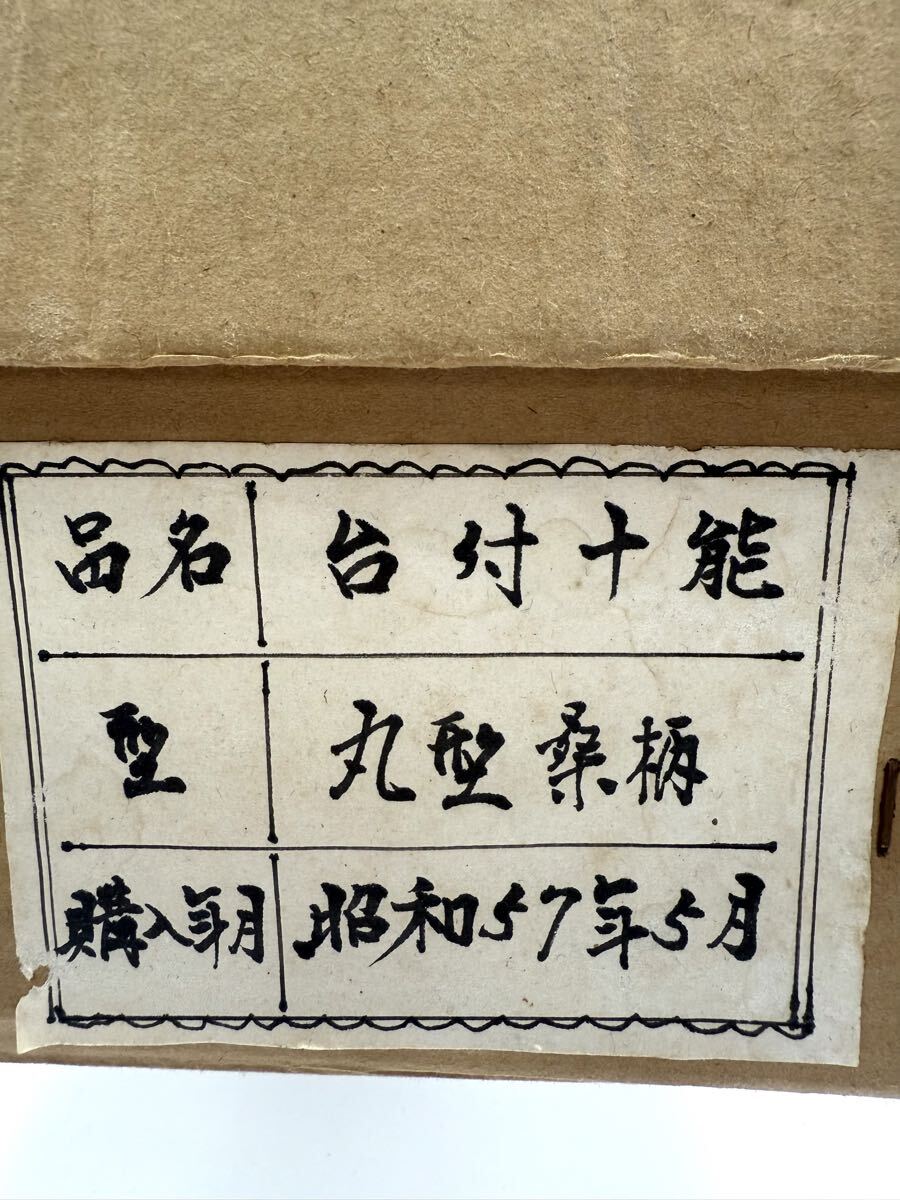 品名 台付十能
型 丸型桑柄
購入年月 昭和57年5月